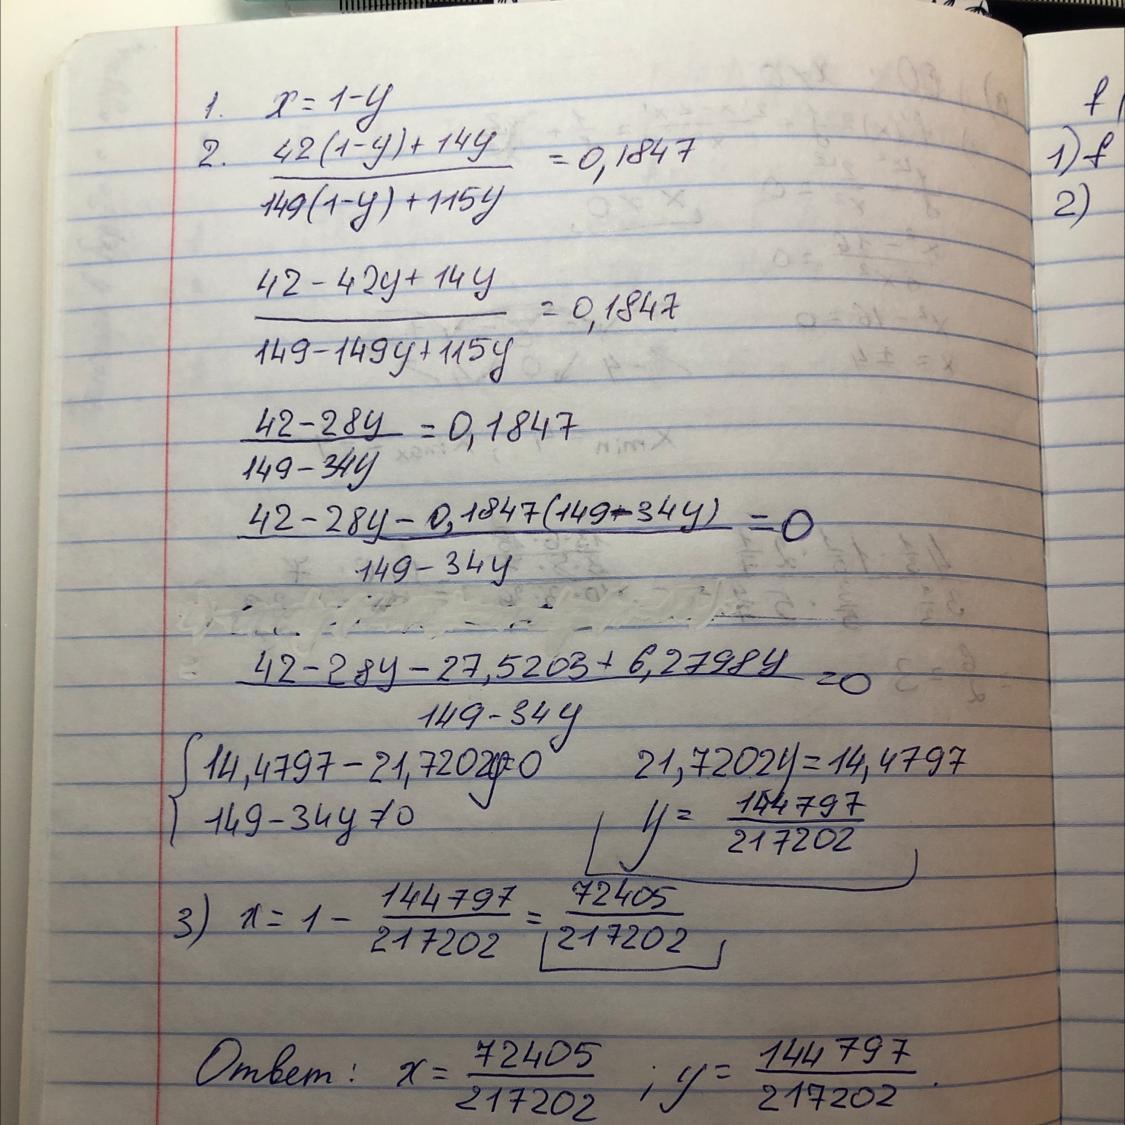 1. x = 1-y
2. 42(1-y)+14y / 149(1-y)+115y = 0,1847
42-42y+14y / 149-149y+115y = 0,1847
42-28y / 149-34y = 0,1847
42-28y-0,1847(149-34y) / 149-34y = 0
42-28y-27,5203+6,2798y / 149-34y = 0
14,4797-21,7202y=0 21,7202y=14,4797
149-34y≠0 y = 144797 / 217202
3) x = 1 - 144797 / 217202 = 72405 / 217202
Ответ: x = 72405 / 217202 ; y = 144797 / 217202 .
f
1) f
2)